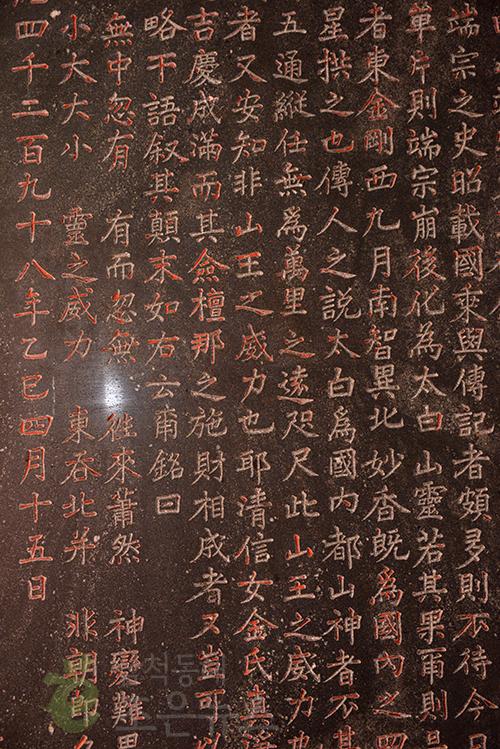 端宗之史昭載國乘與傳記者頗多則不待今日
單戶則端宗崩後化為太白山靈若其果爾則
者東金剛西九月南智異北妙香旣爲國內之四
星拱之也傳人之説太白爲國內都山神者不其
五通縱任無爲萬里之遠咫尺此山王之威力也
者又安知非山王之威力也耶清信女金氏真
吉慶成滿而其僉檀那之施財相成者又豈可以
略干語叙其顛末如右云甫銘曰
無中忽有 有而忽無 往來蕭然 神變難思
小大大小 靈之威力 東吞北并 非朝卽
四千二百九十八年乙巳四月十五日